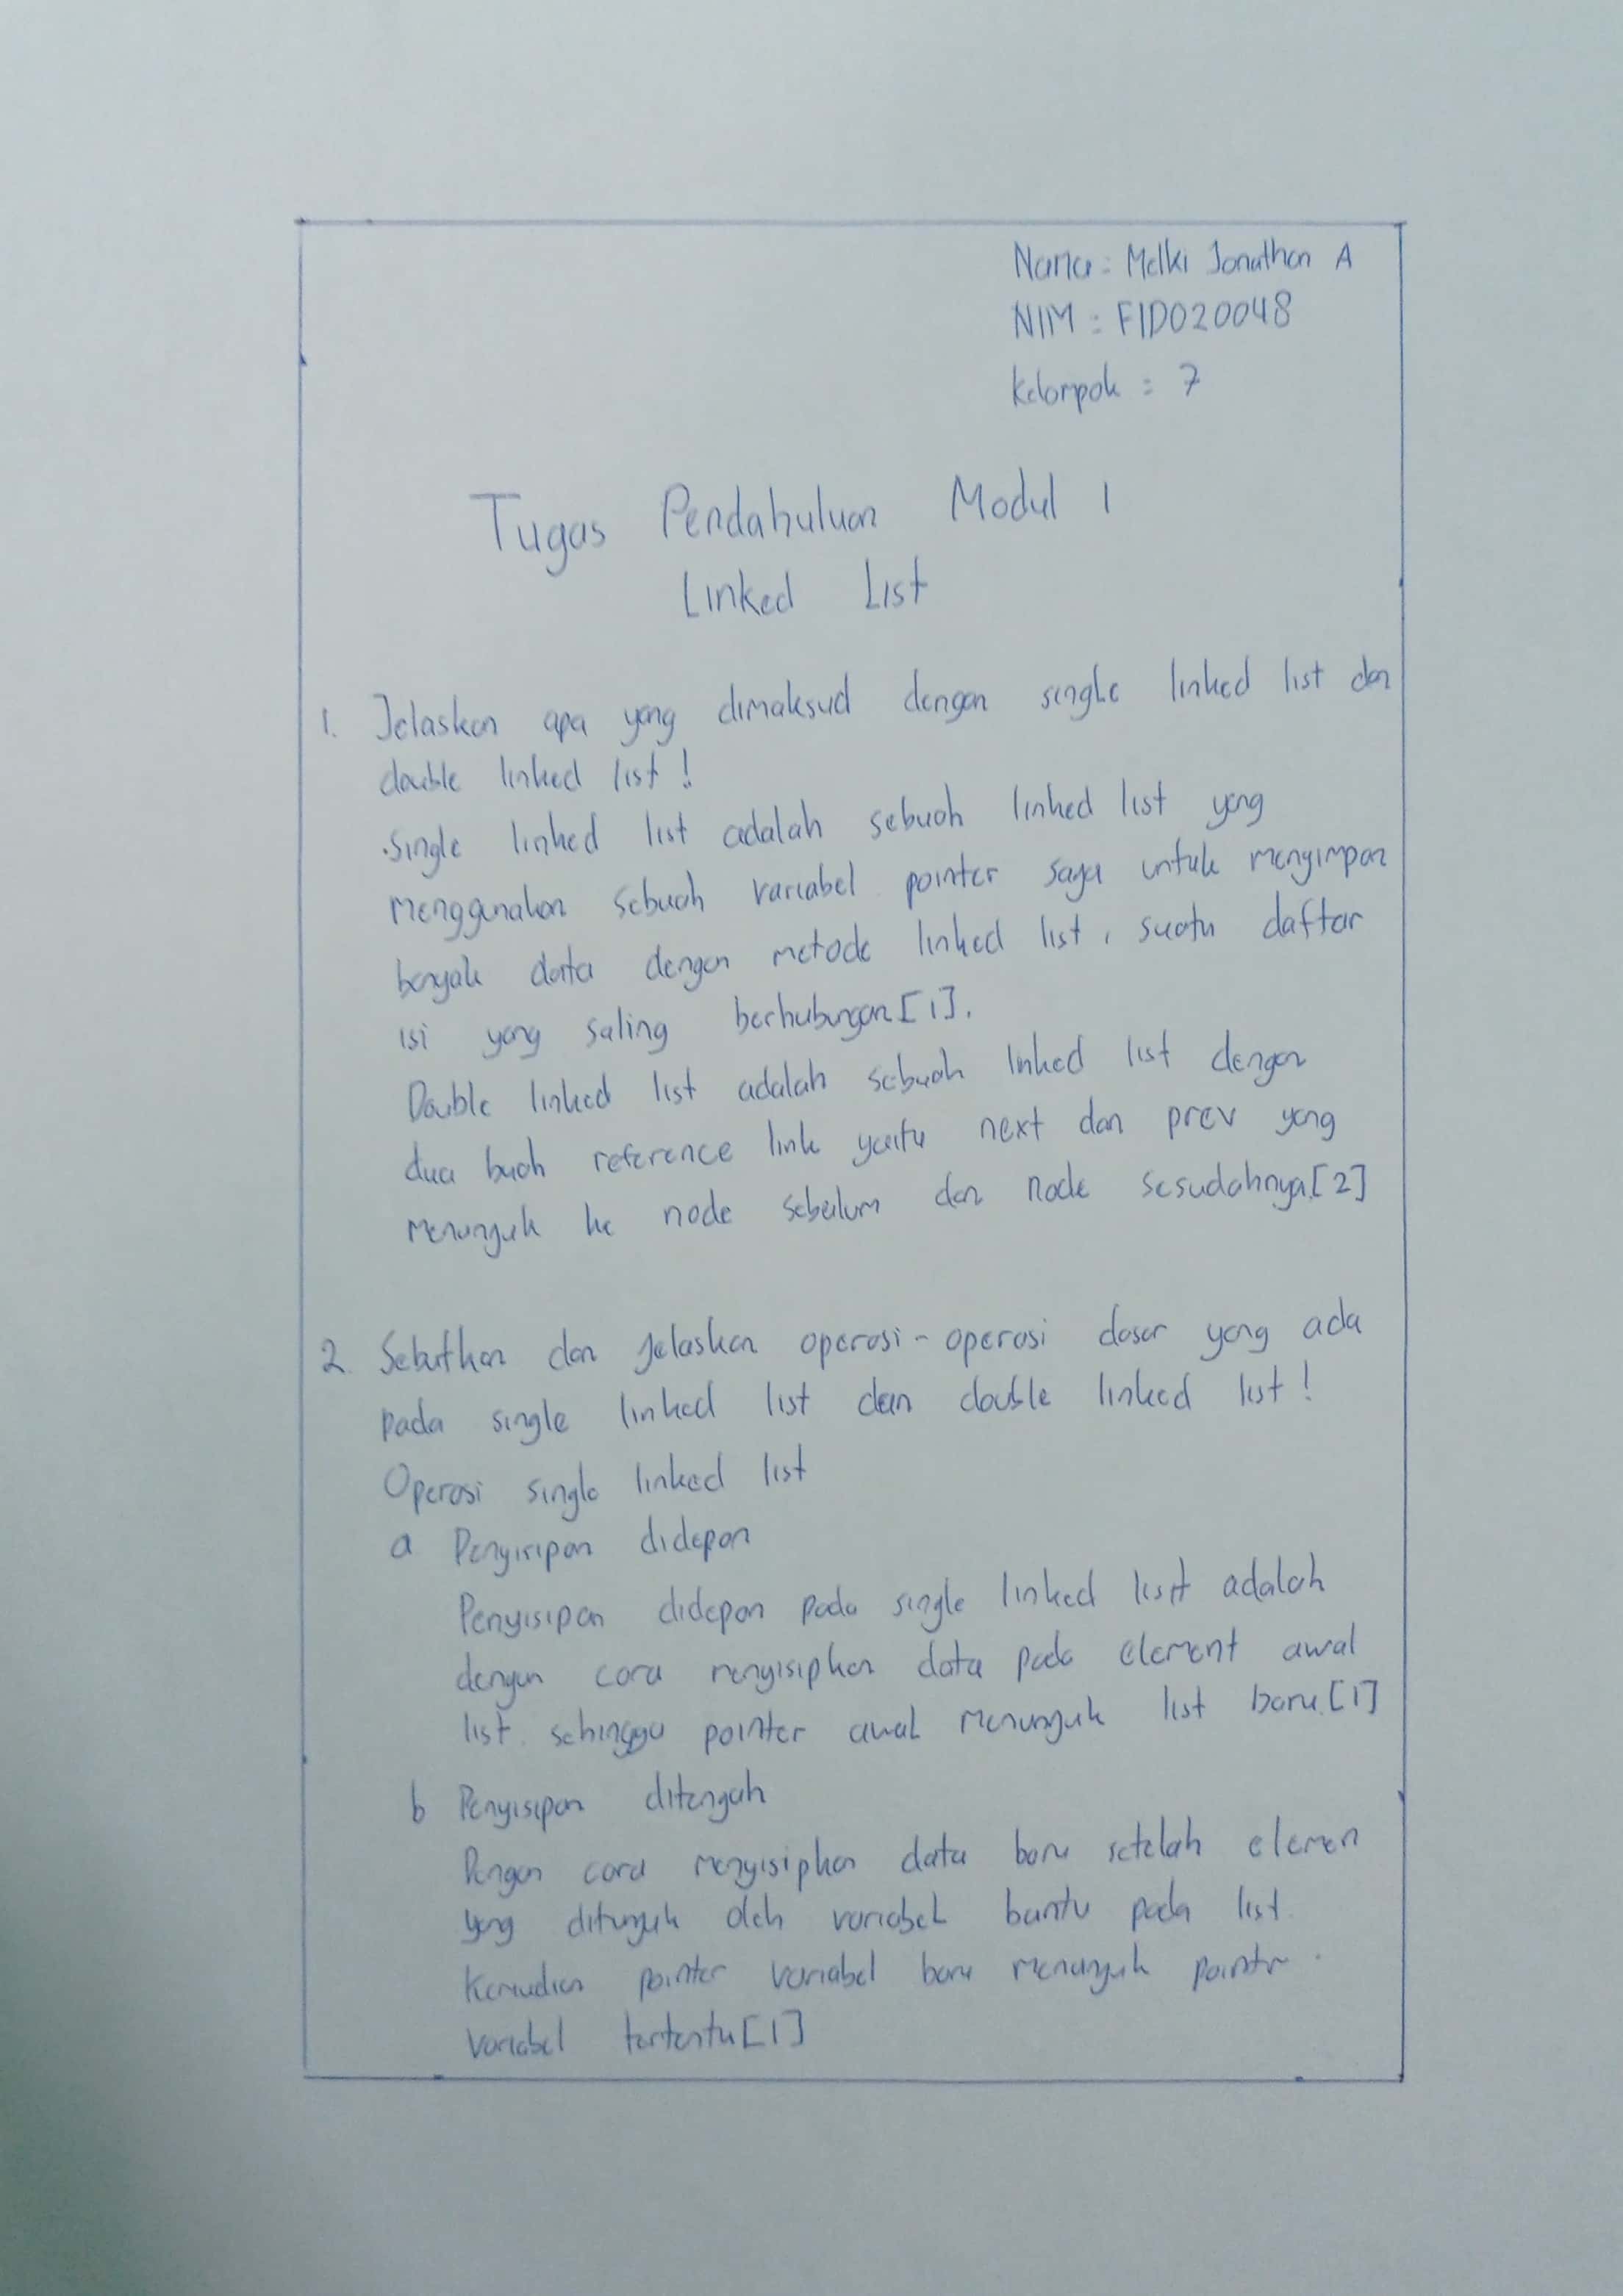 Nama : Melki Jonathan A
NIM : F1D020048
Kelompok : 7
Tugas Pendahuluan Modul 1
Linked List
1. Jelaskan apa yang dimaksud dengan single linked list dan
double linked list !
.Single linked list adalah sebuah linked list yang
menggunakan sebuah variabel pointer saja untuk menyimpan
banyak data dengan metode linked list, suatu daftar
isi yang saling berhubungan[1].
Double linked list adalah sebuah linked list dengan
dua buah reference link yaitu next dan prev yang
menunjuk ke node sebelum dan node sesudahnya.[2]
2. Sebutkan dan jelaskan operasi-operasi dasar yang ada
pada single linked list dan double linked list !
Operasi single linked list
a Penyisipan didepan
Penyisipan didepan pada single linked list adalah
dengan cara menyisipkan data pada element awal
list. sehingga pointer awal menunjuk list baru.[1]
b Penyisipan ditengah
Dengan cara menyisipkan data baru setelah elemen
yang ditunjuk oleh variabel bantu pada list.
Kemudian pointer variabel baru menunjuk pointr
variabel tertentu[1]